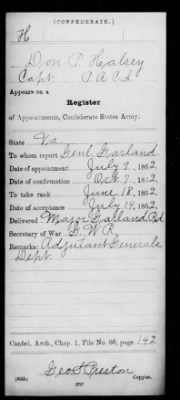 (CONFEDERATE.)
H
Don P. Halsey
Capt. P.A.C.S
Appears on a
Register
of Appointments, Confederate States Army.
State Va
To whom report Genl Garland
Date of appointment July 9, 1862
Date of confirmation Oct 7, 1862
To take rank June 18, 1862
Date of acceptance July 14, 1862
Delivered Major Garland, Rd
Secretary of War G. W. R.
Remarks: Adjutant Generals
Dept.
Confed. Arch., Chap. 1, File No. 86, page 142
Geo. S. Preston
Copyist.